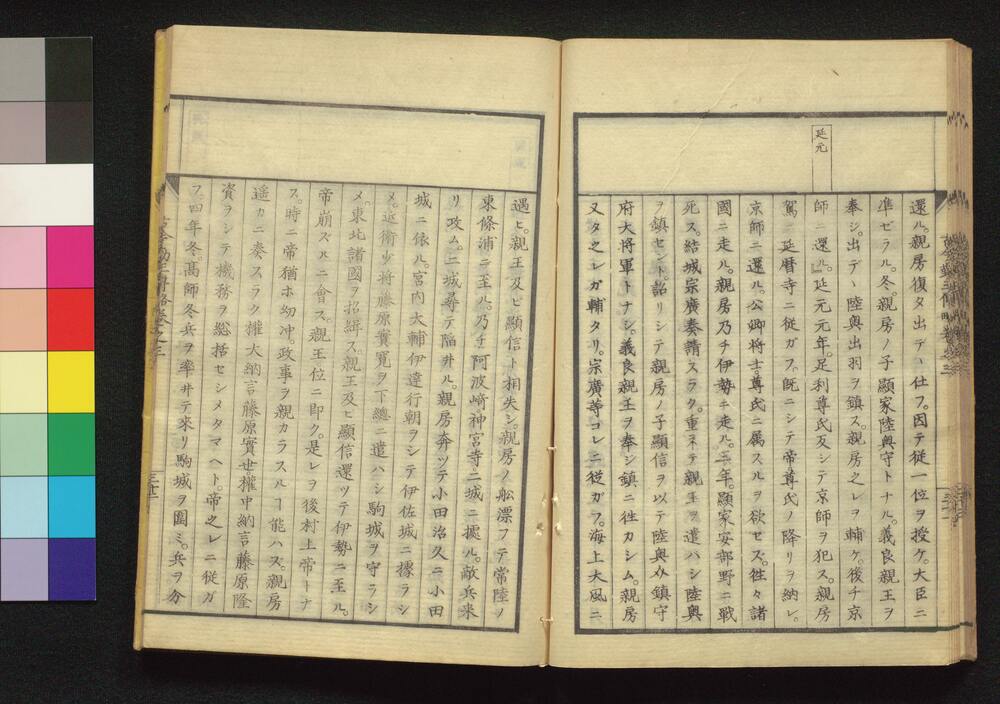 延元
還ル。親房復タ出デヽ仕フ。因テ従一位ヲ授ケ。大臣ニ
準ゼラル。冬。親房ノ子顯家陸奥守トナル。義良親王ヲ
奉シ。出デヽ陸奥出羽ヲ鎮ス。親房之レヲ輔ケ。後チ京
師ニ還ル。』延元元年。足利尊氏反シテ京師ヲ犯ス。親房
駕ニ延暦寺ニ従ガフ。既ニシテ帝尊氏ノ降リヲ納レ。
京師ニ還ル。公卿将士。尊氏ニ属スルヲ欲セズ。徃々諸
國ニ走ル。親房乃チ伊勢ニ走ル。三年。顯家安部野ニ戦
死ス。結城宗廣奏請スラク。重ネテ親王ヲ遣ハシ陸奥
ヲ鎮セント。詔リシテ親房ノ子顯信ヲ以テ陸奥介鎮守
府大将軍トナシ。義良親王ヲ奉シ鎮ニ徃カシム。親房
又タ之レガ輔タリ。宗廣等コレニ従ガフ。海上大風ニ
遇ヒ。親王及ビ顯信ト相失シ。親房ノ舩漂フテ常陸ノ
東條浦ニ至ル。乃チ阿波﨑神宮寺二城ニ據ル。敵兵来
リ攻ム。二城尋テ陥井ル。親房奔ツテ小田治久ニ小田
城ニ依ル。宮内大輔伊達行朝ヲシテ伊佐城ニ據ラシ
メ。近衛少将藤原實寛ヲ下總ニ遣ハシ駒城ヲ守ラシ
メ。東北諸國ヲ招緝ス。親王及ヒ顯信還ツテ伊勢ニ至ル。
帝崩ズルニ會ス。親王位ニ即ク。是レヲ後村上帝トナ
ス。時ニ帝猶ホ幼冲。政事ヲ親カラスルヿ能ハス。親房
遥カニ奏スラク權大納言藤原實世權中納言藤原隆
資ヲシテ機務ヲ総括セシメタマヘト。帝之レニ従ガ
フ。四年冬。髙師冬兵ヲ率井テ來リ駒城ヲ圍ミ。兵ヲ分